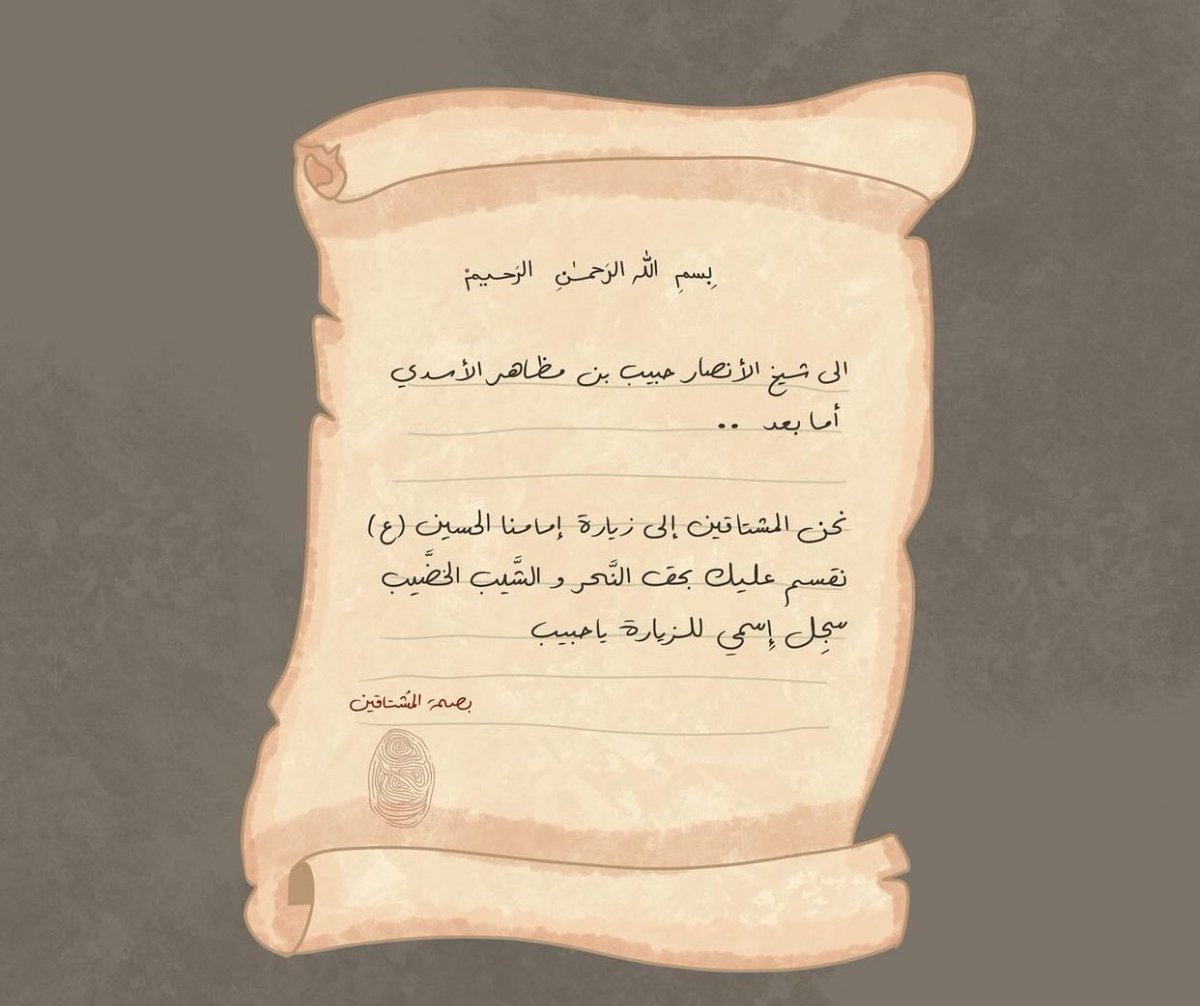 بِسمِ الله الرَحمٰنِ الرَحيمْ
الى شيخ الأنصار حبيب بن مظاهر الأسدي
أما بعد ..
نحن المشتاقين إلى زيارة إمامنا الحسين (ع)
نقسم عليك بحق النَّحر و الشَّيب الخضَّيب
سجِل إِسمي للزيارة ياحبيب
بصمة المُشتاقين